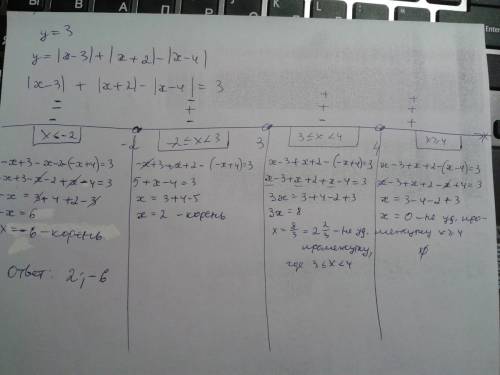 y = 3
y = |x-3| + |x+2| - |x-4|
|x-3| + |x+2| - |x-4| = 3
- - + +
- + + +
- - - +
x < -2
-2 ≤ x < 3
3 ≤ x < 4
x ≥ 4
-2 3 4 x
-x+3-x-2-(-x+4)=3
-x+3-x-2+x-4=3
-x = 3+4+2-3
-x = 6
x = -6 - корень
Ответ: 2; -6
-x+3+x+2-(-x+4)=3
5+x-4=3
x = 3+4-5
x = 2 - корень
x-3+x+2-(-x+4)=3
x-3+x+2+x-4=3
3x = 3+4-2+3
3x = 8
x = 8/3 = 2 2/3 - не уд.
промежутку,
где 3 ≤ x < 4
x-3+x+2-(x-4)=3
x-3+x+2-x+4=3
x = 3-4-2+3
x = 0 - не уд. про-
межутку x ≥ 4